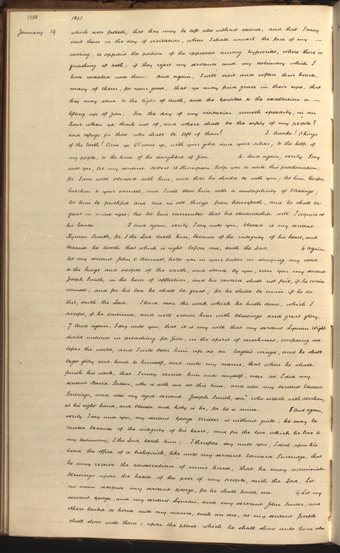 1188 1841
January 19 which were fettered, that they may be left also without excuse, and that I may
visit them in the day of visitation, when I shall unveil the face of my —
covering, to appoint the portion of the oppressor among hypocrites, where there is
gnashing of teeth, if they reject my servants and my testimony which I
have revealed unto them. And again, I will visit and soften their hearts,
many of them, for your good, that ye may find grace in their eyes, that
they may come to the light of truth, and the Gentiles to the exaltation or —
lifting up of Zion. For the day of my visitation cometh speedily, in an
hour when ye think not of, and where shall be the safety of my people?
and refuge for those who shall be left of them? 3 Awake! O kings
of the Earth! Come ye, O! come ye, with your gold and your silver, to the help of
my people, to the house of the daughter of Zion. 4 And again, verily I say
unto you, let my servant Robert B. Thompson help you to write this proclamation;
for I am well pleased with him, and that he should be with you; let him, therefore,
hearken to your counsel, and I will bless him with a multiplicity of blessings;
let him be faithful and true in all things from henceforth, and he shall be
great in mine eyes; but let him remember that his stewardship will I require at
his hands. 5 And again, verily I say unto you, blessed is my servant
Hyrum Smith, for I the Lord loveth him, because of the integrity of his heart, and
because he loveth that which is right before me, saith the Lord. 6 Again
let my servant John C. Bennett, help you in your labor in sending my word
to the kings and people of the earth, and stand by you, even you my servant
Joseph Smith, in the hour of affliction, and his reward shall not fail, if he receive
counsel; and for his love he shall be great; for he shall be mine if he do
this, saith the Lord. I have seen the work which he hath done, which I
accept, if he continue, and will crown him with blessings and great glory.
7 And again, I say unto you, that it is my will that my servant Lyman Wight
should continue in preaching for Zion, in the spirit of meekness, confessing me
before the world, and I will bear him up as on Eagle's wings, and he shall
beget glory and honor to himself, and unto my name, that when he shall
finish his work, that I may receive him unto myself, even as I did my
servant David Patten, who is with me at this time, and also my servant Edward
Partridge, and also my aged servant Joseph Smith, sen. who sitteth with Abraham,
at his right hand, and blessed and holy is he, for he is mine. 8 And again,
verily I say unto you, my servant George Miller is without guile; he may be
trusted because of the integrity of his heart; and for the love which he has to
my testimony, I the Lord loveth him; I therefore say unto you, I seal upon his
head the office of a bishoprick, like unto my servant Edward Partridge, that
he may receive the consecrations of mine house, that he may administer
blessings upon the heads of the poor of my people, saith the Lord. Let
no man despise my servant George, for he shall honor me. 9 Let my
servant George, and my servant Lyman, and my servant John Snider, and
others build a house unto my name, such an one, as my servant Joseph
shall show unto them; upon the place which he shall show unto them also